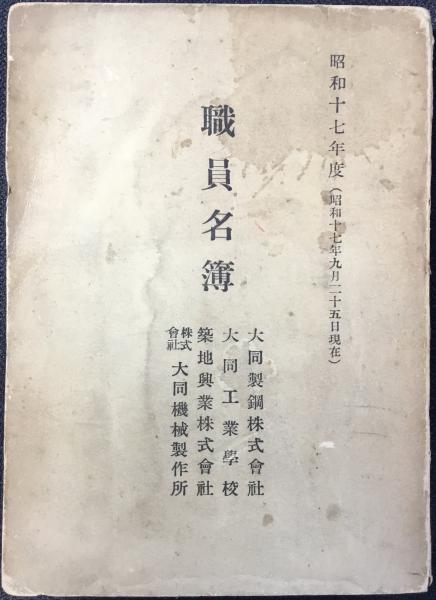 昭和十七年度（昭和十七年九月二十五日現在）
職員名簿
大同製鋼株式會社
大同工業學校
築地興業株式會社
株式會社 大同機械製作所